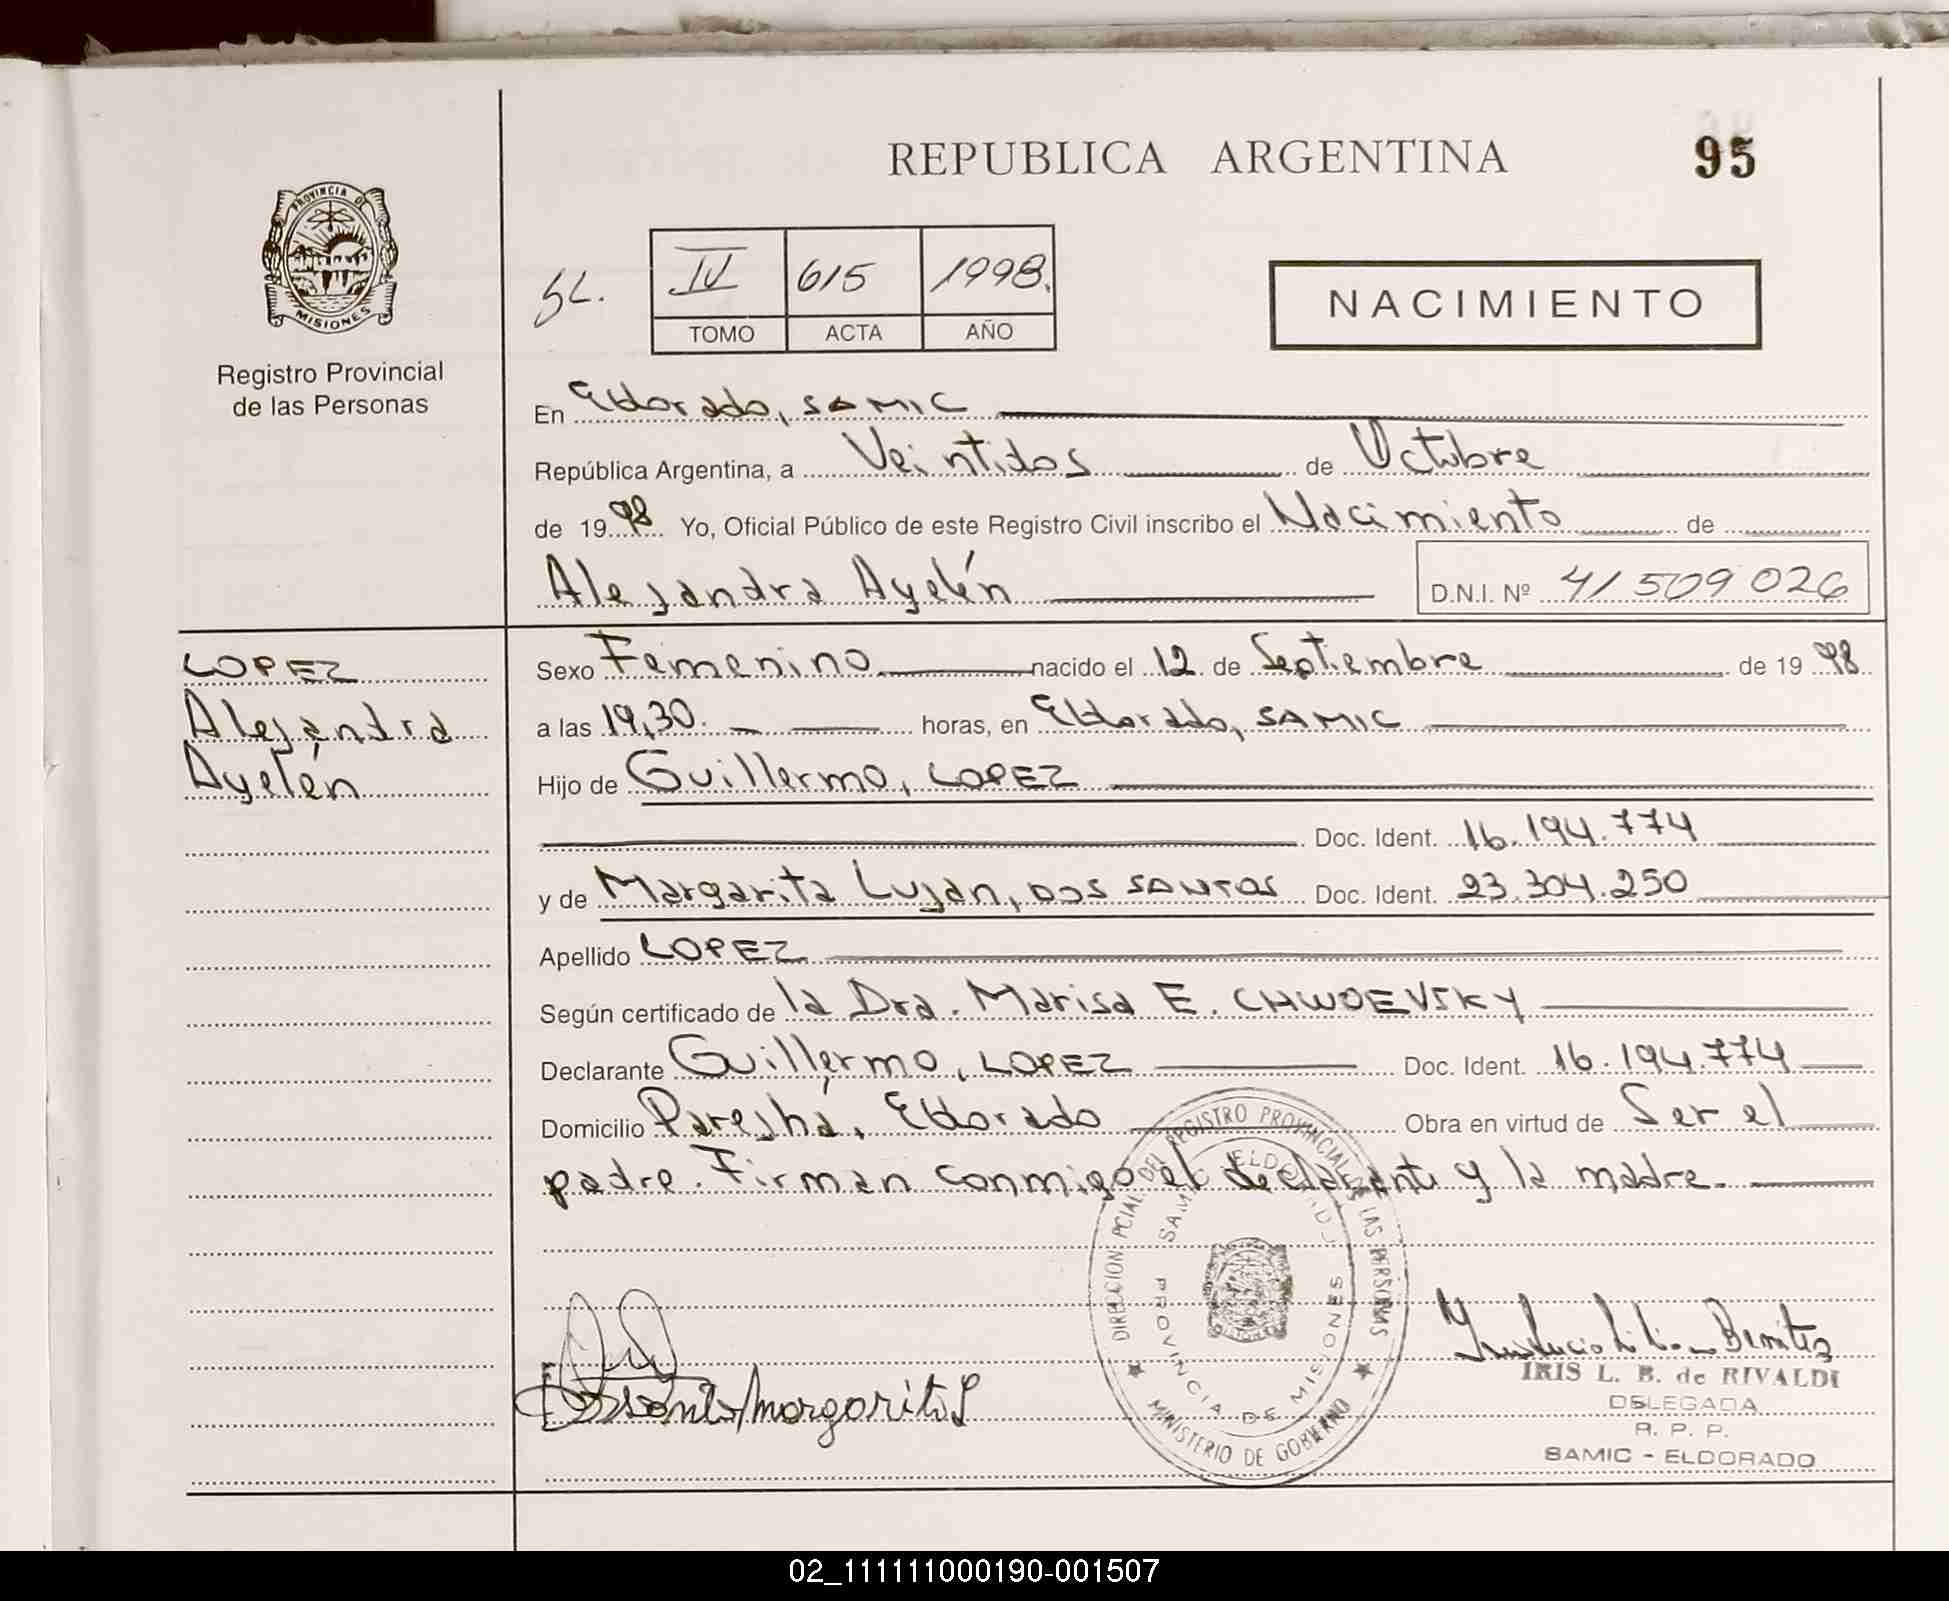 REPUBLICA ARGENTINA
95
PROVINCIA DE
MISIONES
Registro Provincial
de las Personas
IV 615 1998.
TOMO ACTA AÑO
NACIMIENTO
En Eldorado, SAMIC
República Argentina, a Veintidos de Octubre
de 19 98 Yo, Oficial Público de este Registro Civil inscribo el Nacimiento de
Alejandra Ayelén D.N.I. Nº 41 509 026
LOPEZ
Alejandra
Ayelén
Sexo Femenino nacido el 12 de Septiembre de 19 98
a las 19,30. horas, en Eldorado, SAMIC
Hijo de Guillermo, LOPEZ
Doc. Ident. 16.194.774
y de Margarita Lujan, DOS SANTOS Doc. Ident. 23.304.250
Apellido LOPEZ
Según certificado de la Dra. Marisa E. CHWOEVSKY
Declarante Guillermo, LOPEZ Doc. Ident. 16.194.774
Domicilio Eldorado Obra en virtud de Ser el
padre. Firman conmigo el declarante y la madre.
DIRECCION PCIAL. DEL REGISTRO PROVINCIAL DE LAS PERSONAS
SAMIC ELDORADO
PROVINCIA DE MISIONES
MINISTERIO DE GOBIERNO
Dos Santos Margarita L
Benitez
IRIS L. B. de RIVALDI
DELEGADA
R. P. P.
SAMIC - ELDORADO
02_111111000190-001507